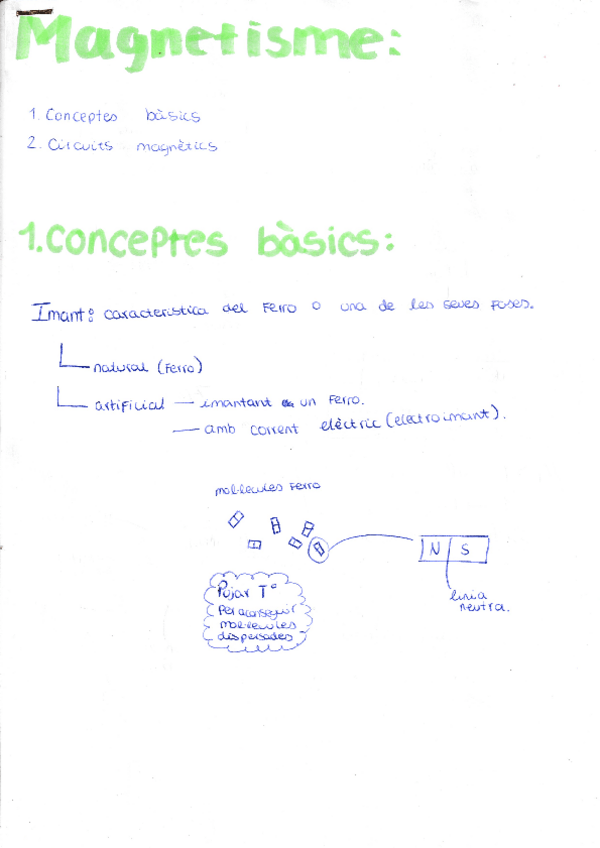 Magnetisme:
1. Conceptes bàsics
2. Circuits magnètics
1. Conceptes bàsics:
Imant: característica del Ferro o una de les seves fases.
natural (Ferro)
artificial — imantant un Ferro.
— amb corrent elèctric (electroimant).
mol·lècules Ferro
N S
línia
neutra.
Pujar Tº
Per aconseguir
mol·lècules
dispersades